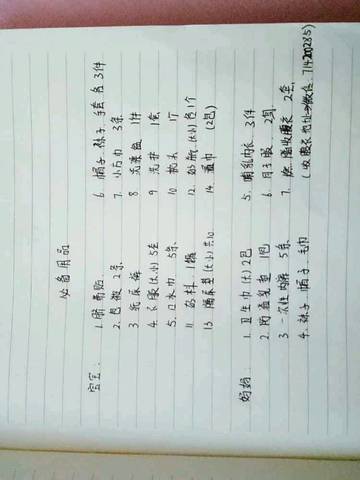 必备用品
宝宝:
1. 6. 帽子 袜子 手套 各3件
2. 包被 2条 7. 小方巾 3条
3. 纸尿裤 8. 洗澡盆 1件
4. 衣服(大小) 5套 9. 1套
5. 口水巾 5条 10. 枕头 1个
11. 1罐 12. 奶瓶(大小)各1个
13. 隔尿垫(大小)共10 14. 湿巾 (2包)
妈妈:
1. 卫生巾(大)2包 5. 哺乳内衣 3件
2. 防溢乳垫 1包 6. 月子服 2套
3. 一次性内裤 5条 7. 收腹 2套
4. 袜子 帽子 毛巾 (收腹衣地址→微信